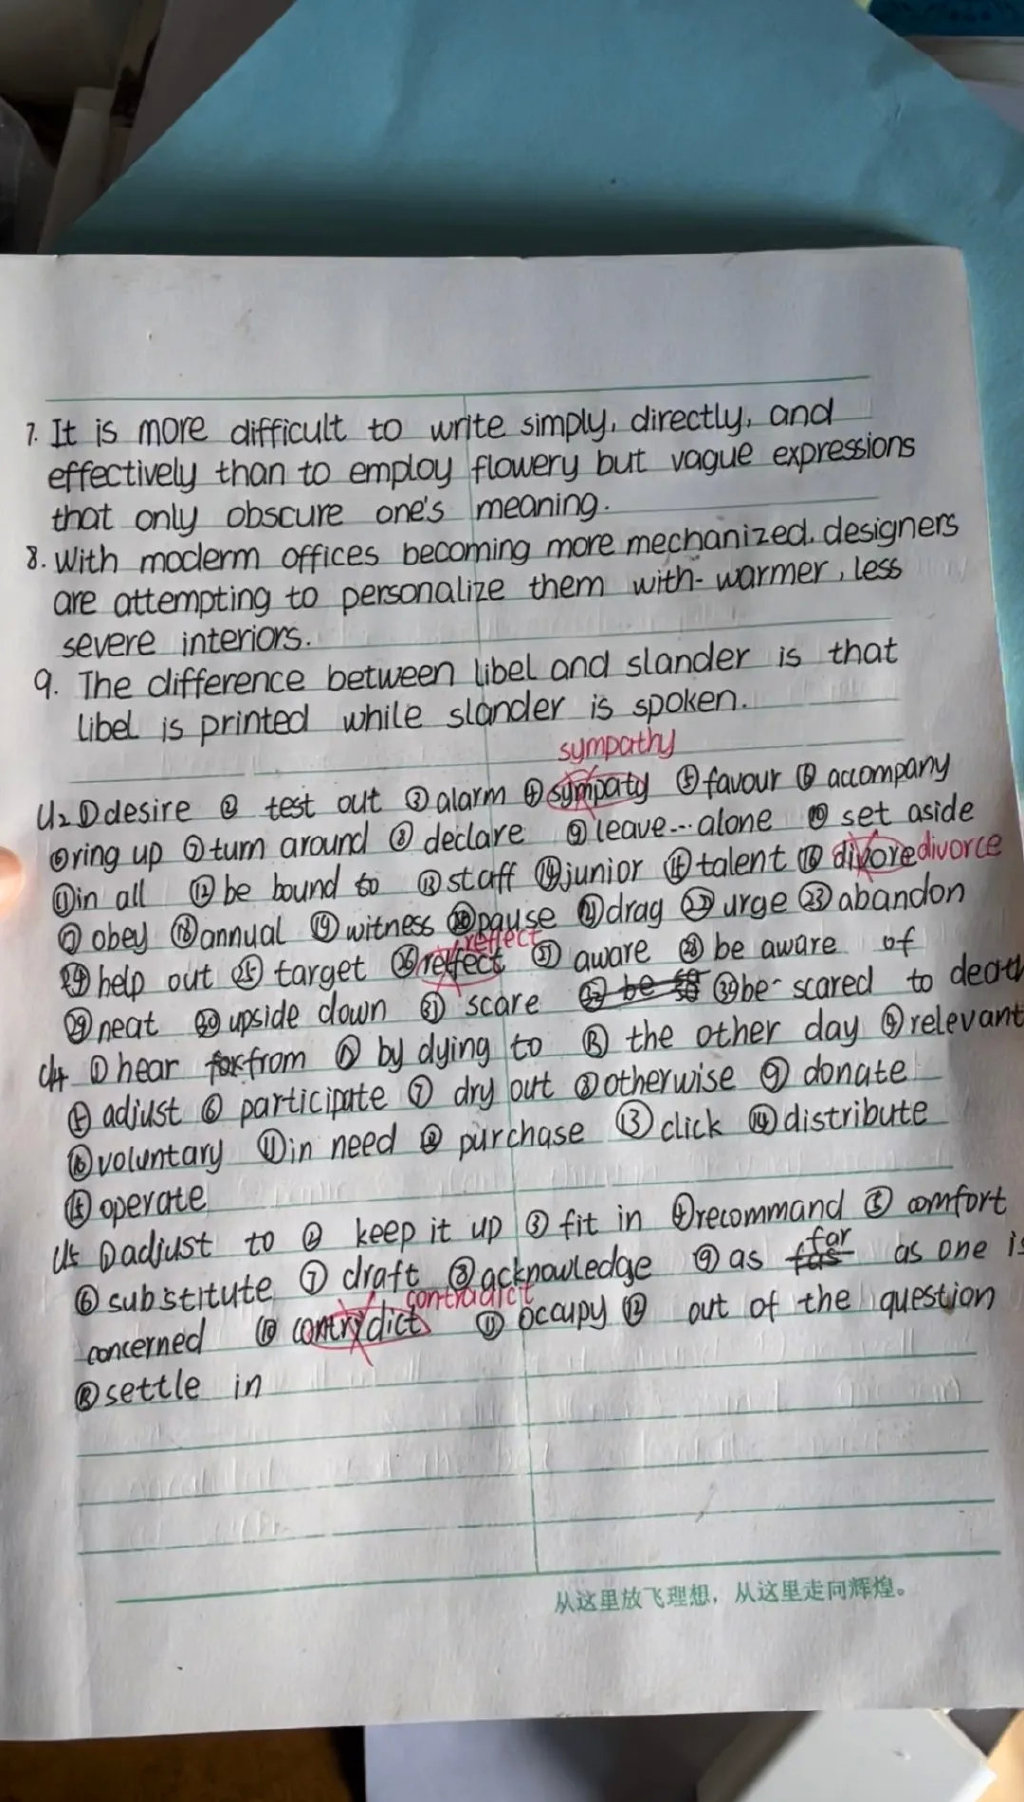 7. It is more difficult to write simply, directly, and
effectively than to employ flowery but vague expressions
that only obscure one's meaning.
8. With moderm offices becoming more mechanized, designers
are attempting to personalize them with warmer, less
severe interiors.
9. The difference between libel and slander is that
libel is printed while slander is spoken.
sympathy
U2 ①desire ② test out ③alarm ④sympaty ⑤favour ⑥ accompany
⑥ring up ⑦turn around ⑧ declare ⑨leave...alone ⑩ set aside
⑪in all ⑫be bound to ⑬staff ⑭junior ⑮talent ⑯ divore divorce
⑰ obey ⑱annual ⑲witness ⑳pause ㉑drag ㉒urge ㉓abandon
reflect
㉔help out ㉕ target ㉖relfect ㉗ aware ㉘ be aware of
㉙neat ㉚upside down ㉛ scare ㉜ be ㉜be scared to death
U4 ①hear for from ② by dying to ③ the other day ④relevant
⑤ adjust ⑥ participate ⑦ dry out ⑧otherwise ⑨ donate
⑩voluntary ⑪in need ⑫ purchase ⑬click ⑭distribute
⑮ operate
U5 ①adjust to ② keep it up ③fit in ④recommand ⑤ comfort
far
⑥substitute ⑦ draft ⑧acknowledge ⑨as fas as one is
contradict
concerned ⑩ contrydict ⑪ occupy ⑫ out of the question
⑬settle in
从这里放飞理想，从这里走向辉煌。